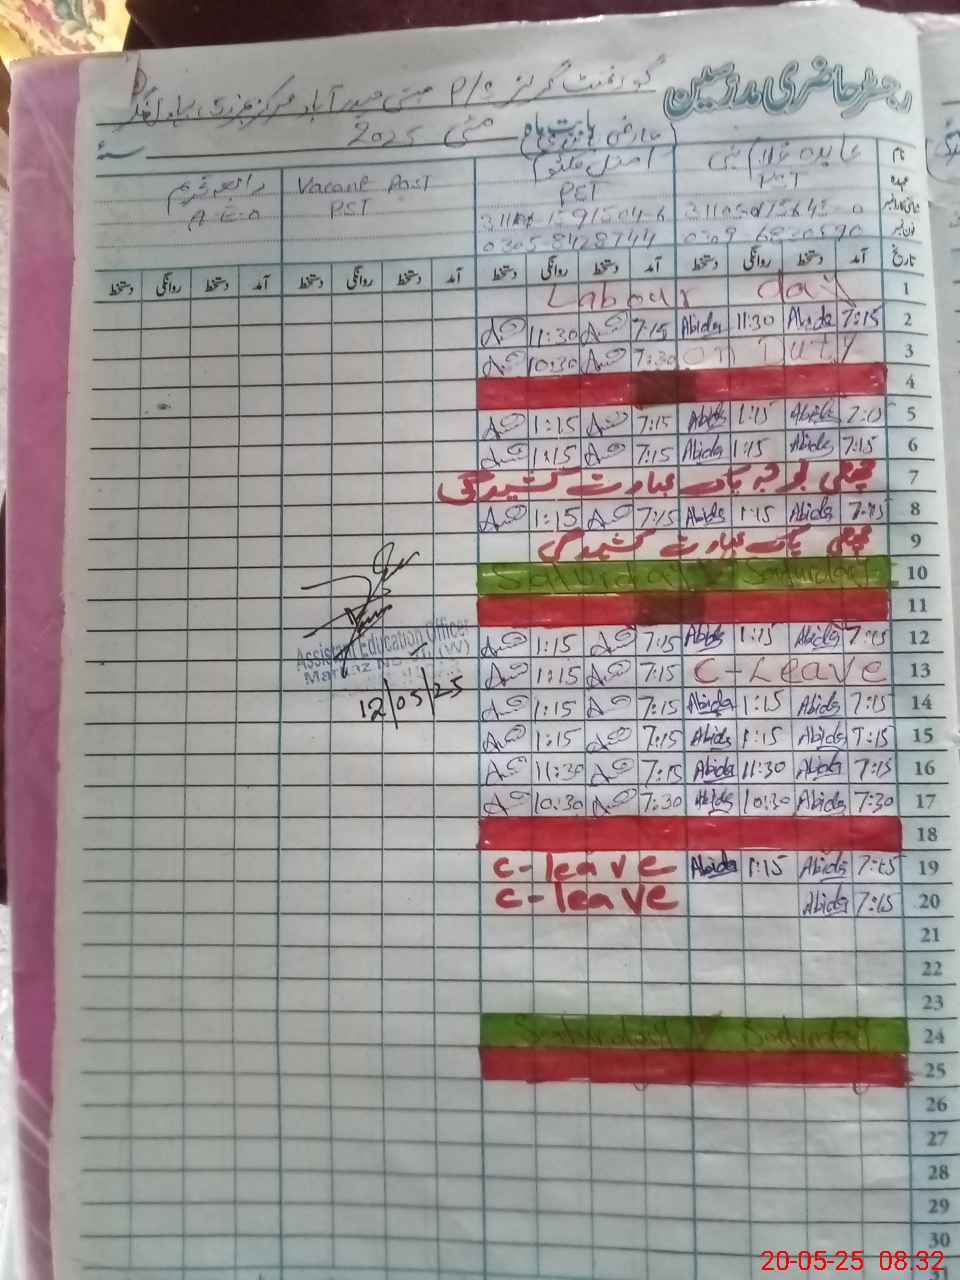 رجسٹر حاضری مدرسین
گورنمنٹ گرلز P/S بستی حیدر آباد مرکز
بابت ماہ مئی 2025
نام عابدہ
Vacant Post
عہدہ PST PET PST A.E.O
فون نمبر 0305-8428744
تاریخ آمد دستخط روانگی دستخط آمد دستخط روانگی دستخط آمد دستخط روانگی دستخط آمد دستخط روانگی دستخط
1 Labour day
2 7:15 Abida 11:30 Abida 7:15 11:30
3 On Duty 7:30 10:30
4
5 7:15 Abida 1:15 Abida 7:15 1:15
6 7:15 Abida 1:15 Abida 7:15 1:15
7 چھٹی بوجہ پاک بھارت کشیدگی
8 7:15 Abida 1:15 Abida 7:15 1:15
9 چھٹی پاک بھارت کشیدگی
10 Saturday Saturday
11
12 7:15 Abida 1:15 Abida 7:15 1:15
Assistant Education Officer
Markaz (W)
12/05/25
13 C-Leave 7:15 1:15
14 7:15 Abida 1:15 Abida 7:15 1:15
15 7:15 Abida 1:15 Abida 7:15 1:15
16 7:15 Abida 11:30 Abida 7:15 11:30
17 7:30 Abida 10:30 Abida 7:30 10:30
18
19 7:15 Abida 1:15 Abida C-leave
20 7:15 Abida C-leave
21
22
23
24 Saturday Saturday
25
26
27
28
29
30
31
20-05-25 08:32